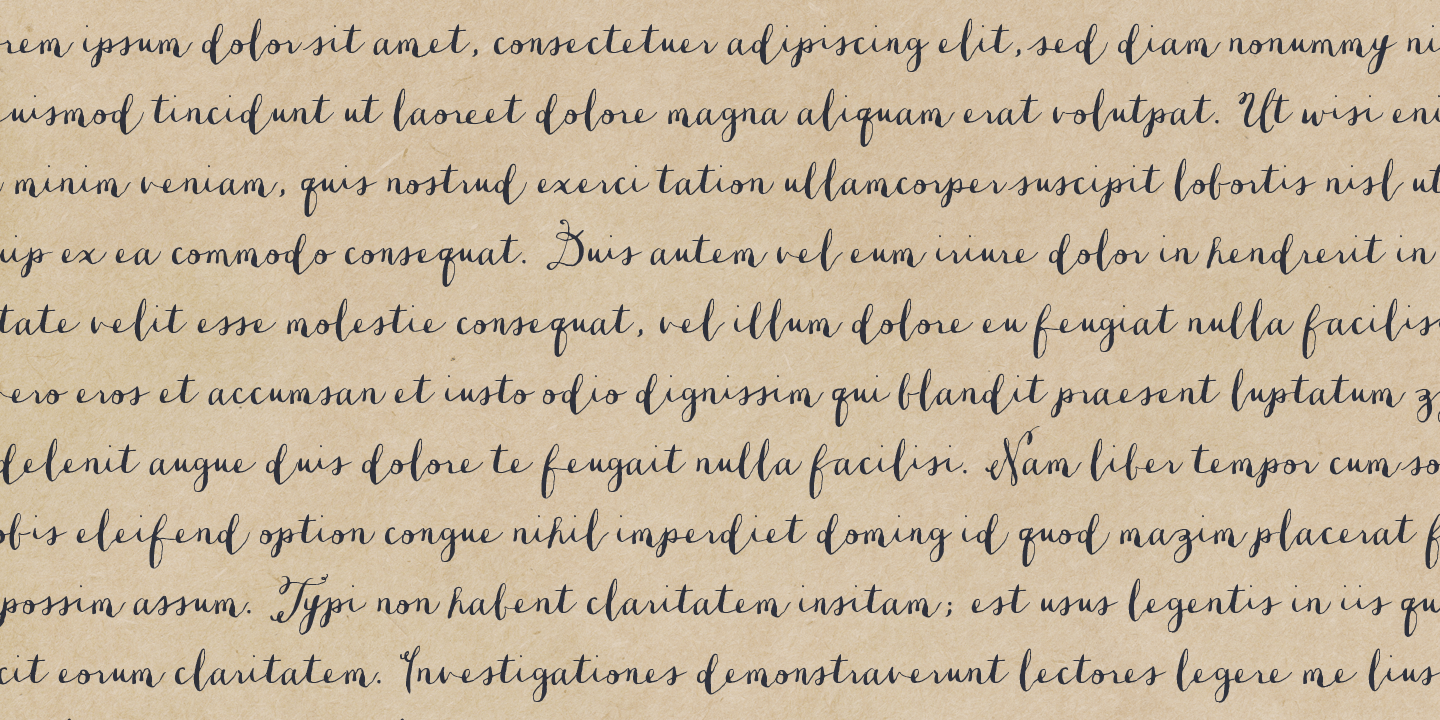 rem ipsum dolor sit amet, consectetuer adipiscing elit, sed diam nonummy ni
uismod tincidunt ut laoreet dolore magna aliquam erat volutpat. Ut wisi eni
minim veniam, quis nostrud exerci tation ullamcorper suscipit lobortis nisl ut
uip ex ea commodo consequat. Duis autem vel eum iriure dolor in hendrerit in
tate velit esse molestie consequat, vel illum dolore eu feugiat nulla facilis
ero eros et accumsan et iusto odio dignissim qui blandit praesent luptatum z
delenit augue duis dolore te feugait nulla facilisi. Nam liber tempor cum so
obis eleifend option congue nihil imperdiet doming id quod mazim placerat f
possim assum. Typi non habent claritatem insitam; est usus legentis in iis qu
cit eorum claritatem. Investigationes demonstraverunt lectores legere me lius